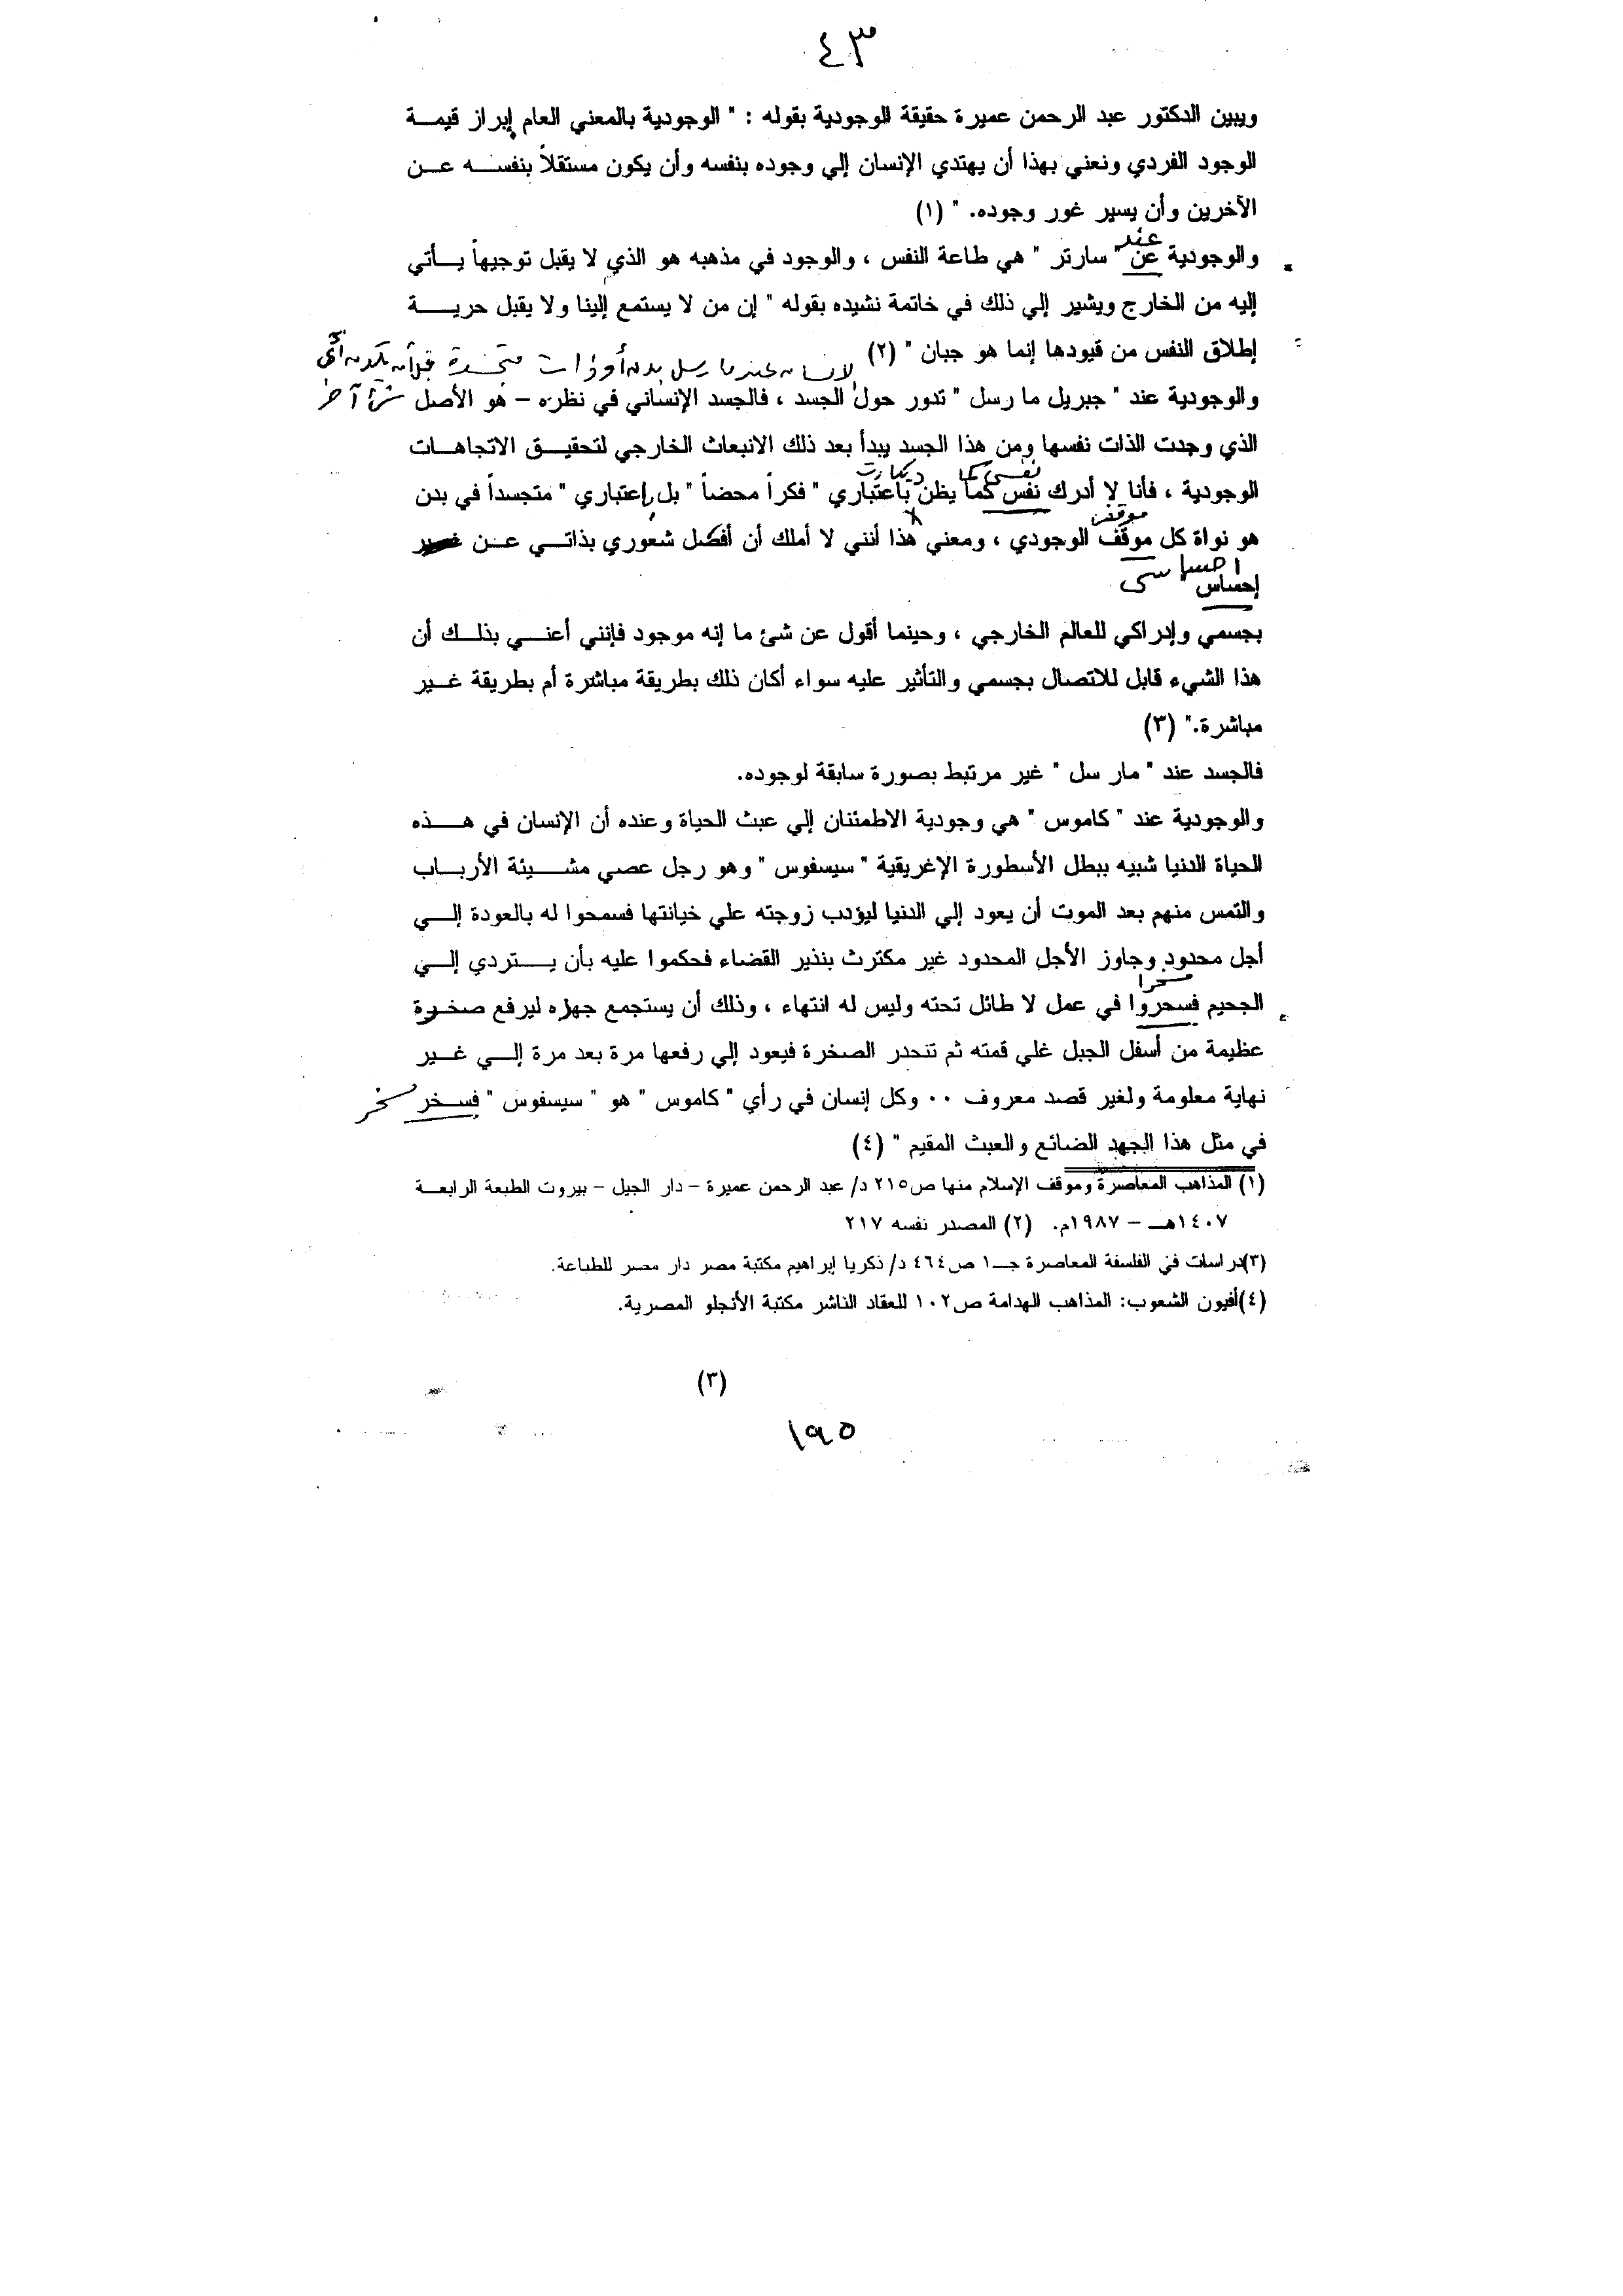 ٤٣
ويبين الدكتور عبد الرحمن عميرة حقيقة الوجودية بقوله : " الوجودية بالمعني العام إبراز قيمـــة
الوجود الفردي ونعني بهذا أن يهتدي الإنسان إلي وجوده بنفسه وأن يكون مستقلاً بنفســـه عـــن
الآخرين وأن يسير غور وجوده. " (١)
عند
والوجودية عن " سارتر " هي طاعة النفس ، والوجود في مذهبه هو الذي لا يقبل توجيهاً يـــأتي
إليه من الخارج ويشير إلي ذلك في خاتمة نشيده بقوله " إن من لا يستمع إلينا ولا يقبل حريـــة
إطلاق النفس من قيودها إنما هو جبان " (٢)
الإنسان عند مارسل بدن أو ذات متجسدة قبل أن يكون أي
والوجودية عند " جبريل ما رسل " تدور حول الجسد ، فالجسد الإنساني في نظره – هو الأصل شئ آخر
الذي وجدت الذات نفسها ومن هذا الجسد يبدأ بعد ذلك الانبعاث الخارجي لتحقيـــق الاتجاهـــات
نفسي كما ديكارت
الوجودية ، فأنا لا أدرك نفس كما يظن باعتباري " فكراً محضاً " بل إعتباري " متجسداً في بدن
موقف
هو نواة كل موقف الوجودي ، ومعني هذا أنني لا أملك أن أفصل شعوري بذاتـــي عـــن
احساسي
إحساس
بجسمي وإدراكي للعالم الخارجي ، وحينما أقول عن شئ ما إنه موجود فإنني أعنـــي بذلـــك أن
هذا الشيء قابل للاتصال بجسمي والتأثير عليه سواء أكان ذلك بطريقة مباشرة أم بطريقة غـــير
مباشرة." (٣)
فالجسد عند " مار سل " غير مرتبط بصورة سابقة لوجوده.
والوجودية عند " كاموس " هي وجودية الاطمئنان إلي عبث الحياة وعنده أن الإنسان في هـــذه
الحياة الدنيا شبيه ببطل الأسطورة الإغريقية " سيسفوس " وهو رجل عصي مشـــيئة الأربـــاب
والتمس منهم بعد الموت أن يعود إلي الدنيا ليؤدب زوجته علي خيانتها فسمحوا له بالعودة إلـــي
أجل محدود وجاوز الأجل المحدود غير مكترث بنذير القضاء فحكموا عليه بأن يـــتردي إلـــي
مسخرا
الجحيم فسحروا في عمل لا طائل تحته وليس له انتهاء ، وذلك أن يستجمع جهده ليرفع صخـرة
عظيمة من أسفل الجبل غلي قمته ثم تنحدر الصخرة فيعود إلي رفعها مرة بعد مرة إلـــي غـــير
نهاية معلومة ولغير قصد معروف ٠٠ وكل إنسان في رأي " كاموس " هو " سيسفوس " فســخر مسخر
في مثل هذا الجهد الضائع والعبث المقيم " (٤)
(١) المذاهب المعاصرة وموقف الإسلام منها ص٢١٥ د/ عبد الرحمن عميرة – دار الجيل – بيروت الطبعة الرابعـــة
١٤٠٧هـــ – ١٩٨٧م. (٢) المصدر نفسه ٢١٧
(٣)دراسات في الفلسفة المعاصرة جـــ١ ص٤٦٤ د/ زكريا إبراهيم مكتبة مصر دار مصر للطباعة.
(٤)أفيون الشعوب: المذاهب الهدامة ص١٠٢ للعقاد الناشر مكتبة الأنجلو المصرية.
(٣)
١٩٥